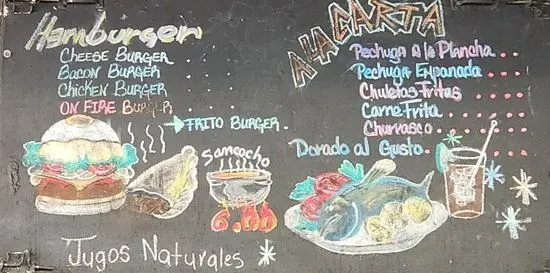 Hamburger
CHEESE BURGER
BACON BURGER
CHICKEN BURGER
ON FIRE BURGER
FRITO BURGER.
Sancocho
Jugos Naturales
A LA CARTA
Pechuga A la Plancha
Pechuga Empanada
Chuletas Fritas
Carne Frita
Churrasco
Dorado al Gusto